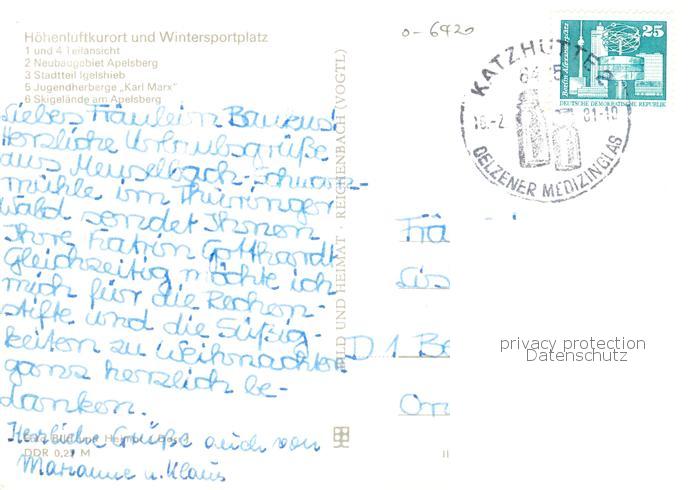 Höhenluftkurort und Wintersportplatz
1 und 4 Teilansicht
2 Neubaugebiet Apelsberg
3 Stadtteil Igelshieb
5 Jugendherberge „Karl Marx"
6 Skigelände am Apelsberg
o-6420
KATZHÜTTE 2
64 5
16.-2. 81-18
OELZENER MEDIZINGLAS
25
Berlin Alexanderplatz
DEUTSCHE DEMOKRATISCHE REPUBLIK
Liebes Fräulein
Herzliche Urlaubsgrüße
aus Meuselbach-Schwarz-
mühle im Thüringer
Wald sendet Ihnen
Ihre Katrin Gotthardt
Gleichzeitig möchte ich
mich für die Rechen-
stifte und die Süßig-
keiten zu Weihnachten
ganz herzlich be-
danken.
Herzliche Grüße auch von
Marianne u. Klaus
DDR 0,21 M
BILD UND HEIMAT · REICHENBACH (VOGTL)
Frä
D 1 Be
privacy protection
Datenschutz